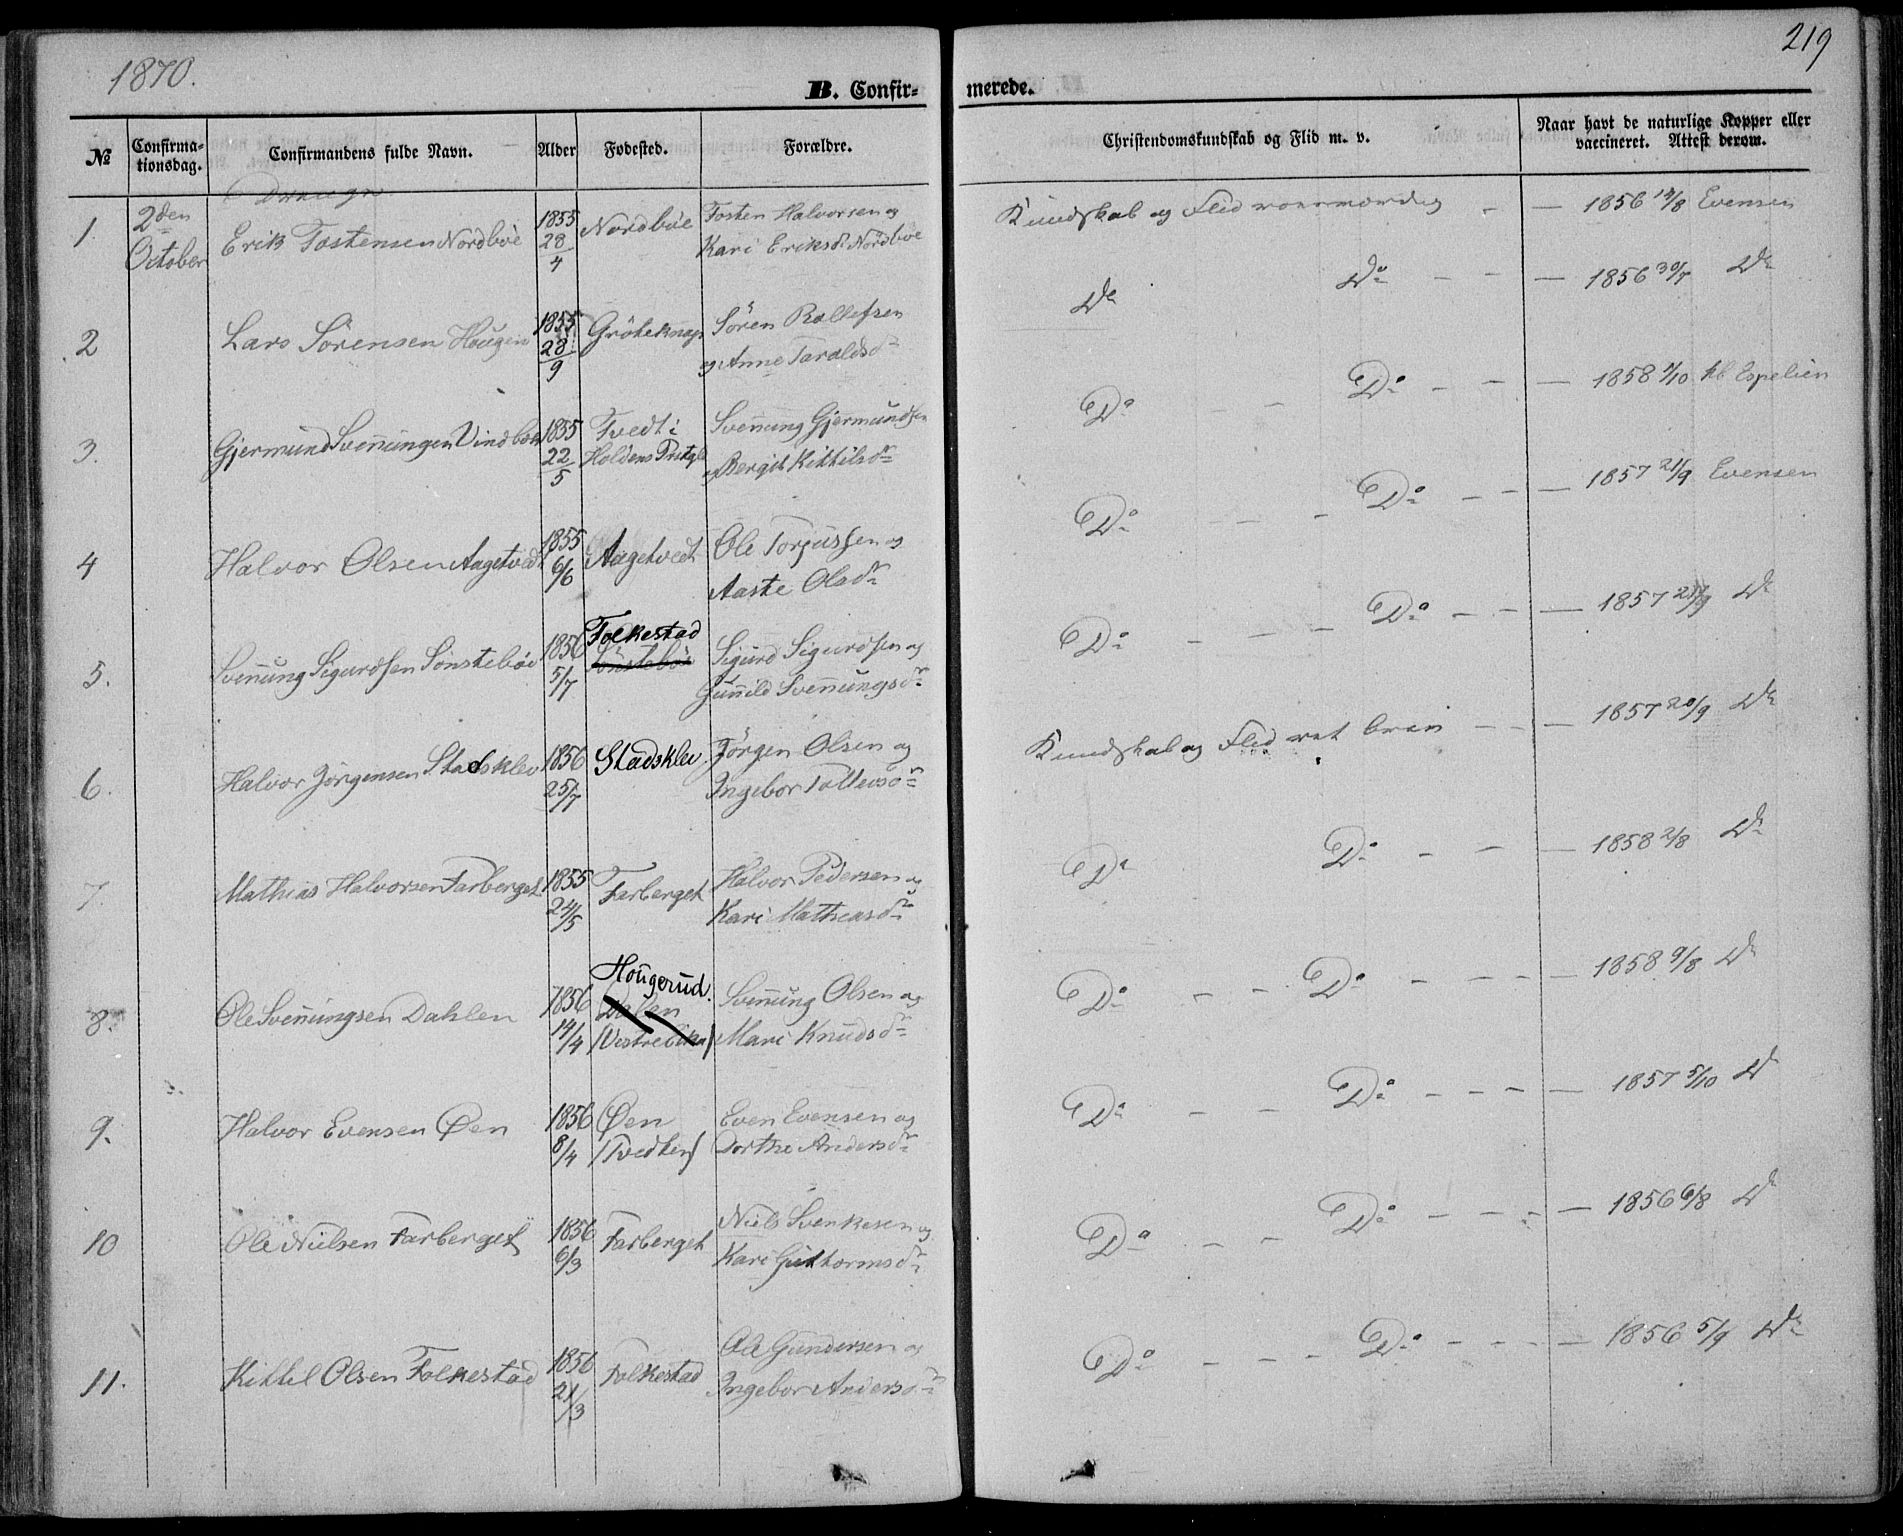 1870.
219
B. Confir-
merede.
№
Confirma-
tionsdag.
Confirmandens fulde Navn.
Alder
Fødested.
Forældre.
Christendomskundskab og Flid m. v.
Naar havt de naturlige Kopper eller
vaccineret. Attest derom.
1.
2den
October
Erik Tostensen Nordbøe
1855
28
4
Nordbøe
Tosten Halvorsen og
Kari Eriksdr Nordbøe
Kundskab og Flid
1856 14/8 Evensen
2
Lars Sörensen Haugen
1855
28
9
Gröteknap
Sören Rollefsen
og Anne Taraldsdr
Do Do
1856 30/7 Do
3.
Gjermund Svenningen Vindbøe
1855
22
5
Tvedt i
Holdens Prstgj
Svennung Gjermundsen
og Bergit Kittilsdr
Do Do
1858 1/10 Espelien
4
Halvor Olsen Aagetvedt
1855
6/6
Aagetvedt
Ole Torjussen og
Aaste Olsdr
Do Do
1857 21/9 Evensen
5.
Svenung Sigurdsen Sönstebøe
1856
5/7
Folkestad
Sönstebøe
Sigurd Sigurdsen og
Gunild Svennungsdr
Do Do
1857 21/9 Do
6.
Halvor Jörgensen Stadsklev
1856
25/7
Stadsklev
Jörgen Olsen og
Ingebor Tollevsdr
Kundskab og Flid
1857 20/9 Do
7.
Mathias Halvorsen Farberget
1855
24/5
Farberget
Halvor Pedersen og
Kari Mathiasdr
Do Do
1858 2/8 Do
8.
Ole Svennungsen Dahlen
1856
14/4
Hougerud.
Dalen
Svennung Olsen og
Mari Knudsdr
Do Do
1858 9/8 Do
9.
Halvor Evensen Øen
1856
8/4
Øen
/Tvedten/
Even Evensen og
Dorthe Andersdr
Do Do
1857 5/10 Do
10
Ole Nielsen Farberget
1856
6/3
Farberget
Niels Svenkesen og
Kari Guttormsdr
Do Do
1856 6/8 Do
11.
Kittel Olsen Folkestad
1856
21/3
Folkestad
Ole Gundersen og
Ingebor Andersdr
Do Do
1856 5/9 Do